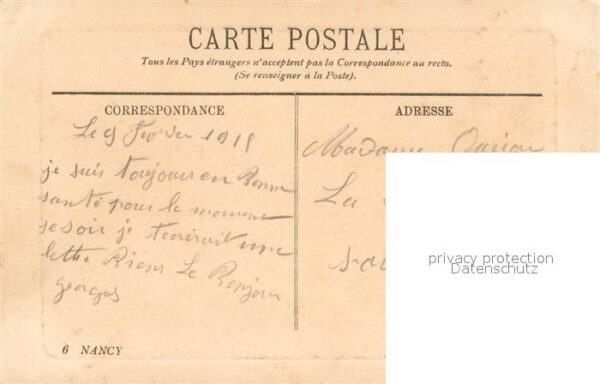 CARTE POSTALE
Tous les Pays étrangers n'acceptent pas la Correspondance au recto.
(Se renseigner à la Poste).
CORRESPONDANCE
ADRESSE
Le 9 1915
je suis toujours en Bonne
santé pour le moment
se soir je tecrirait une
lettre Le Bonjour
Georges
Madame
La
6 NANCY
privacy protection
Datenschutz